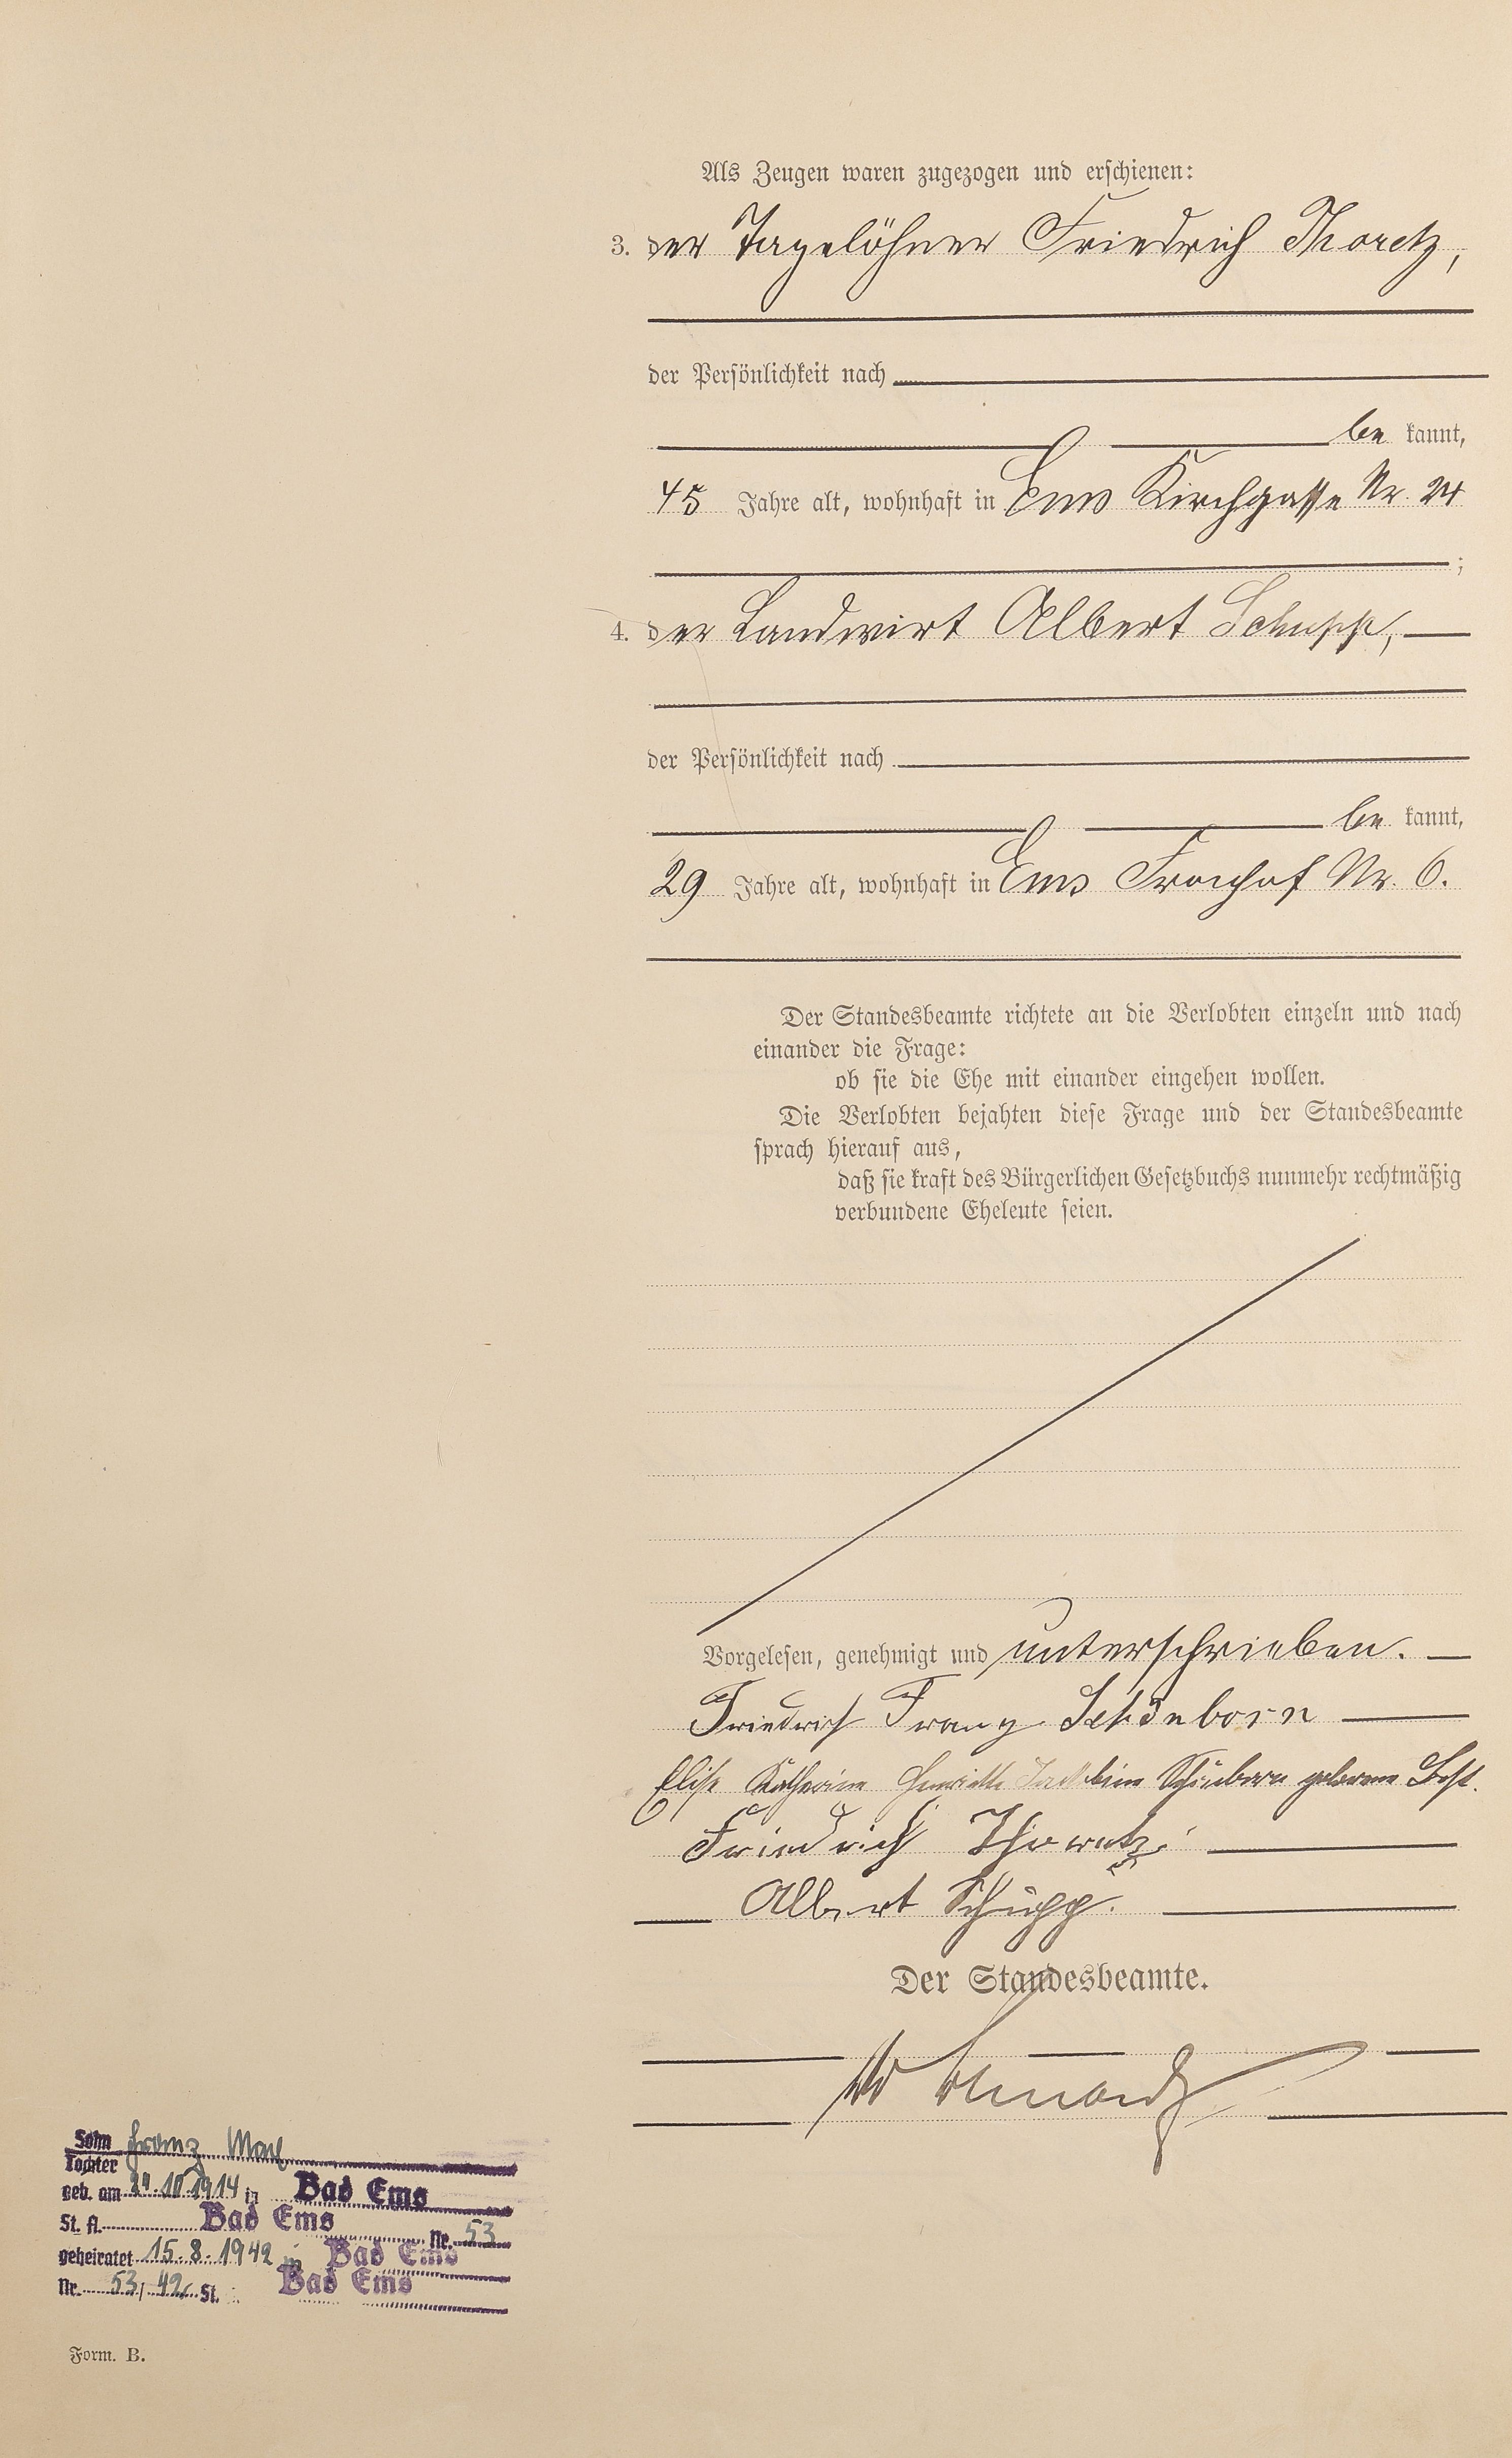 Als Zeugen waren zugezogen und erschienen:
3. der Tagelöhner Friedrich Thoretz,
der Persönlichkeit nach
be kannt,
45 Jahre alt, wohnhaft in Ems Kirchgasse Nr. 24
;
4. der Landwirt Albert Schupp,
der Persönlichkeit nach
be kannt,
29 Jahre alt, wohnhaft in Ems Fronhof Nr. 6.
Der Standesbeamte richtete an die Verlobten einzeln und nach
einander die Frage:
ob sie die Ehe mit einander eingehen wollen.
Die Verlobten bejahten diese Frage und der Standesbeamte
sprach hierauf aus,
daß sie kraft des Bürgerlichen Gesetzbuchs nunmehr rechtmäßig
verbundene Eheleute seien.
Vorgelesen, genehmigt und unterschrieben.
Friedrich Franz Schönborn
Elise Katharine Henriette Schönborn geborene Bost.
Friedrich Thoretz
Albert Schupp.
Der Standesbeamte.
Sohn Franz
Tochter
geb. am 24.10.1914 in Bad Ems
St. A. Bad Ems Nr. 53
geheiratet 15.8.1942 in Bad Ems
Nr. 53/42 St. Bad Ems
Form. B.